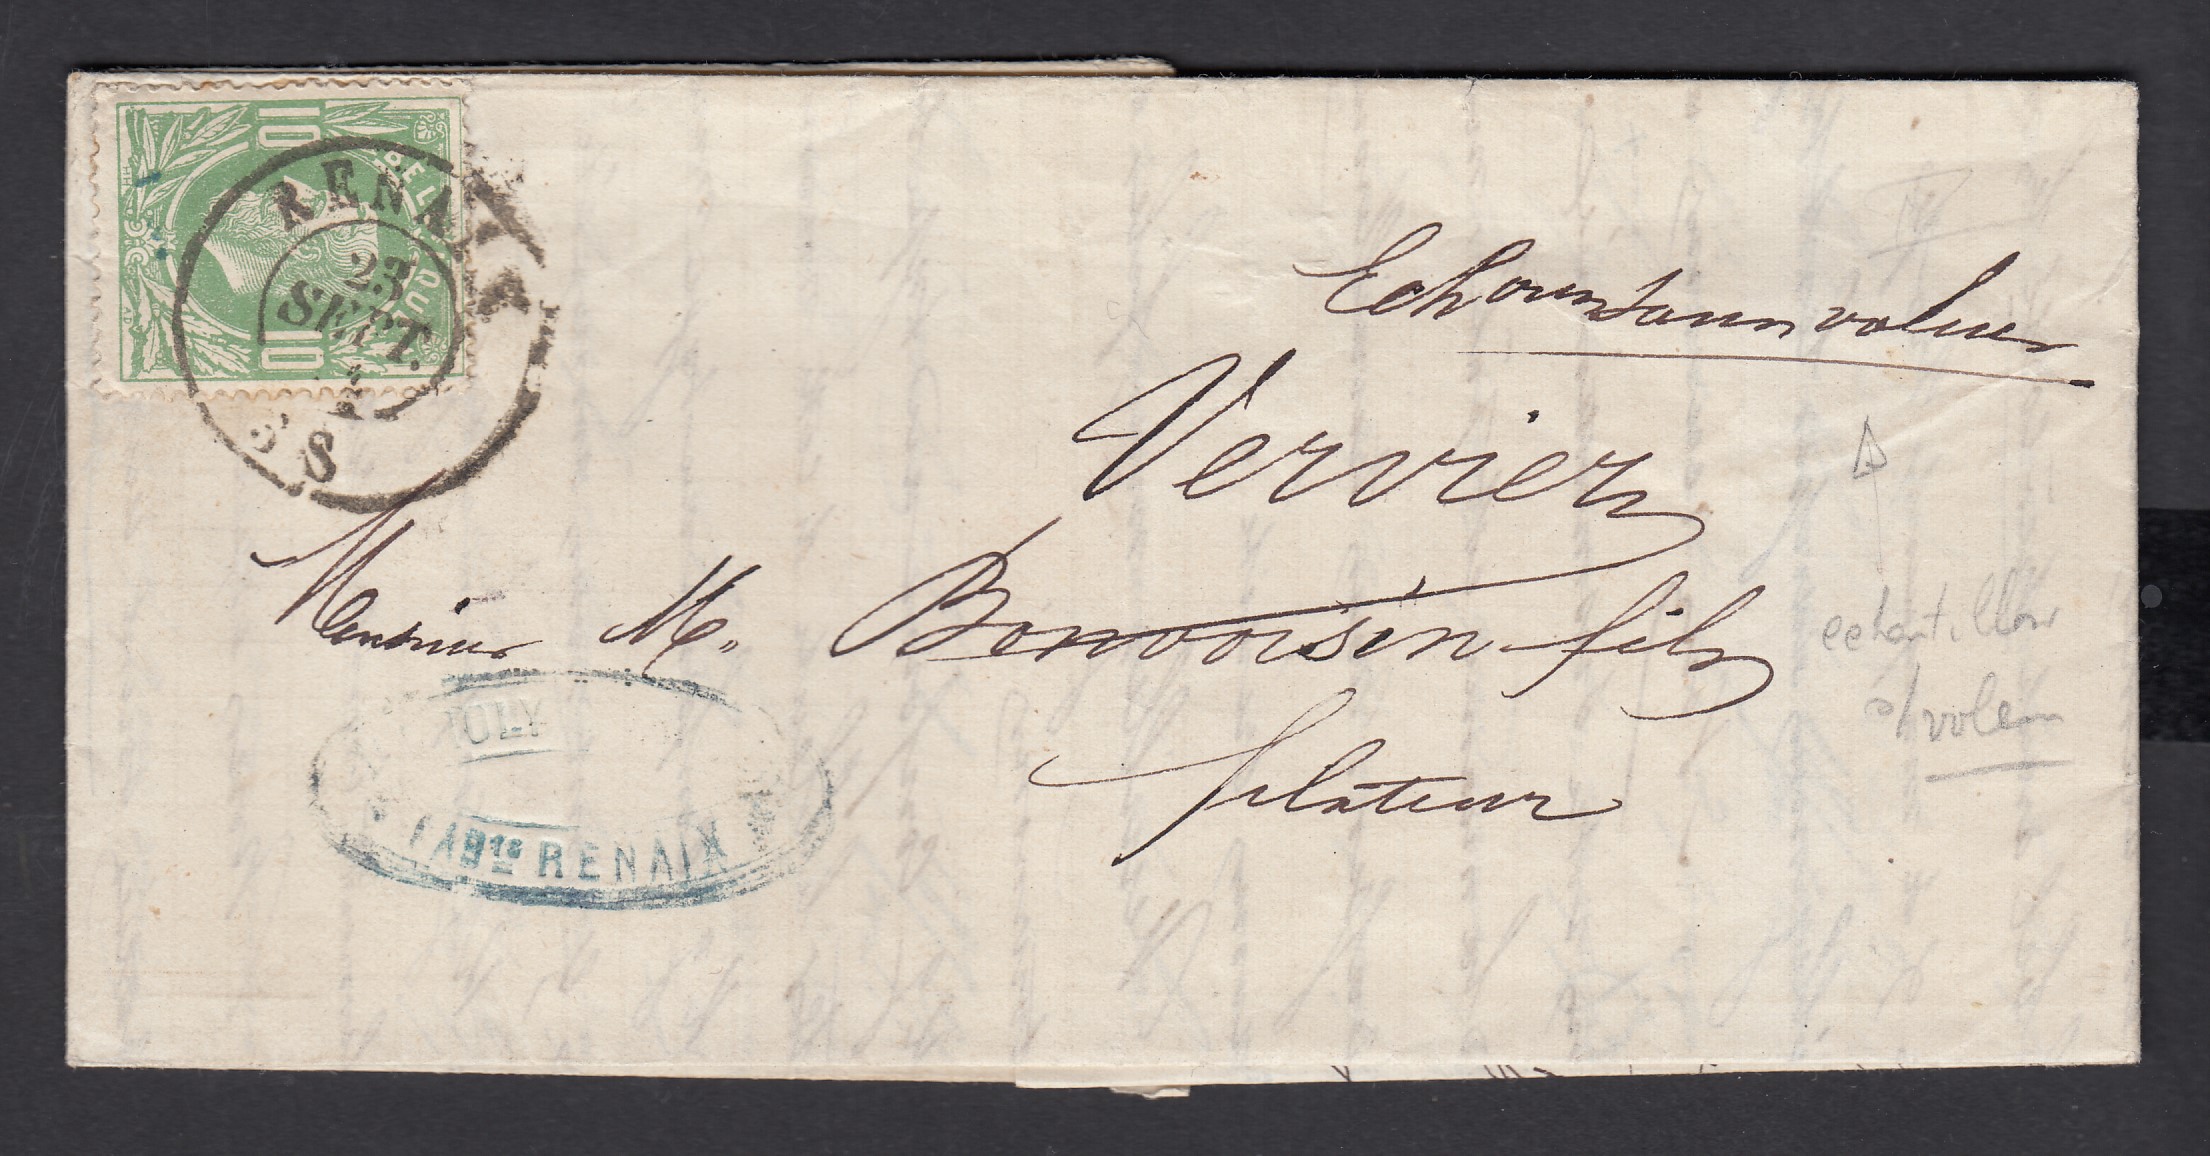 10
BELGIQUE
10
RENAIX
23
SEPT.
8 S
Ech ountaunn valeur
Verviers
Monsieur M. Bonvoisin fils
filateur
OLY
FABts RENAIX
echantillon
s/valeur